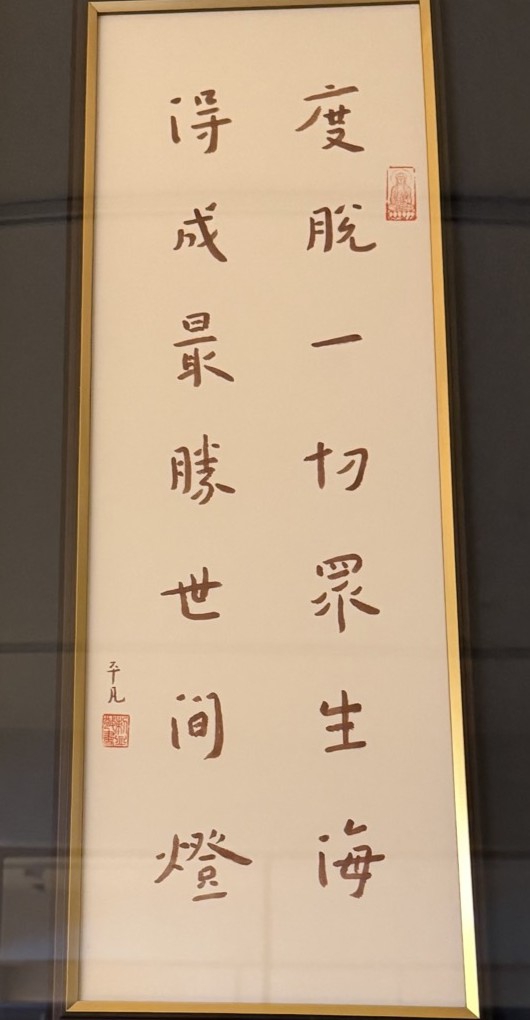 度脫一切眾生海
得成最勝世間燈
平凡